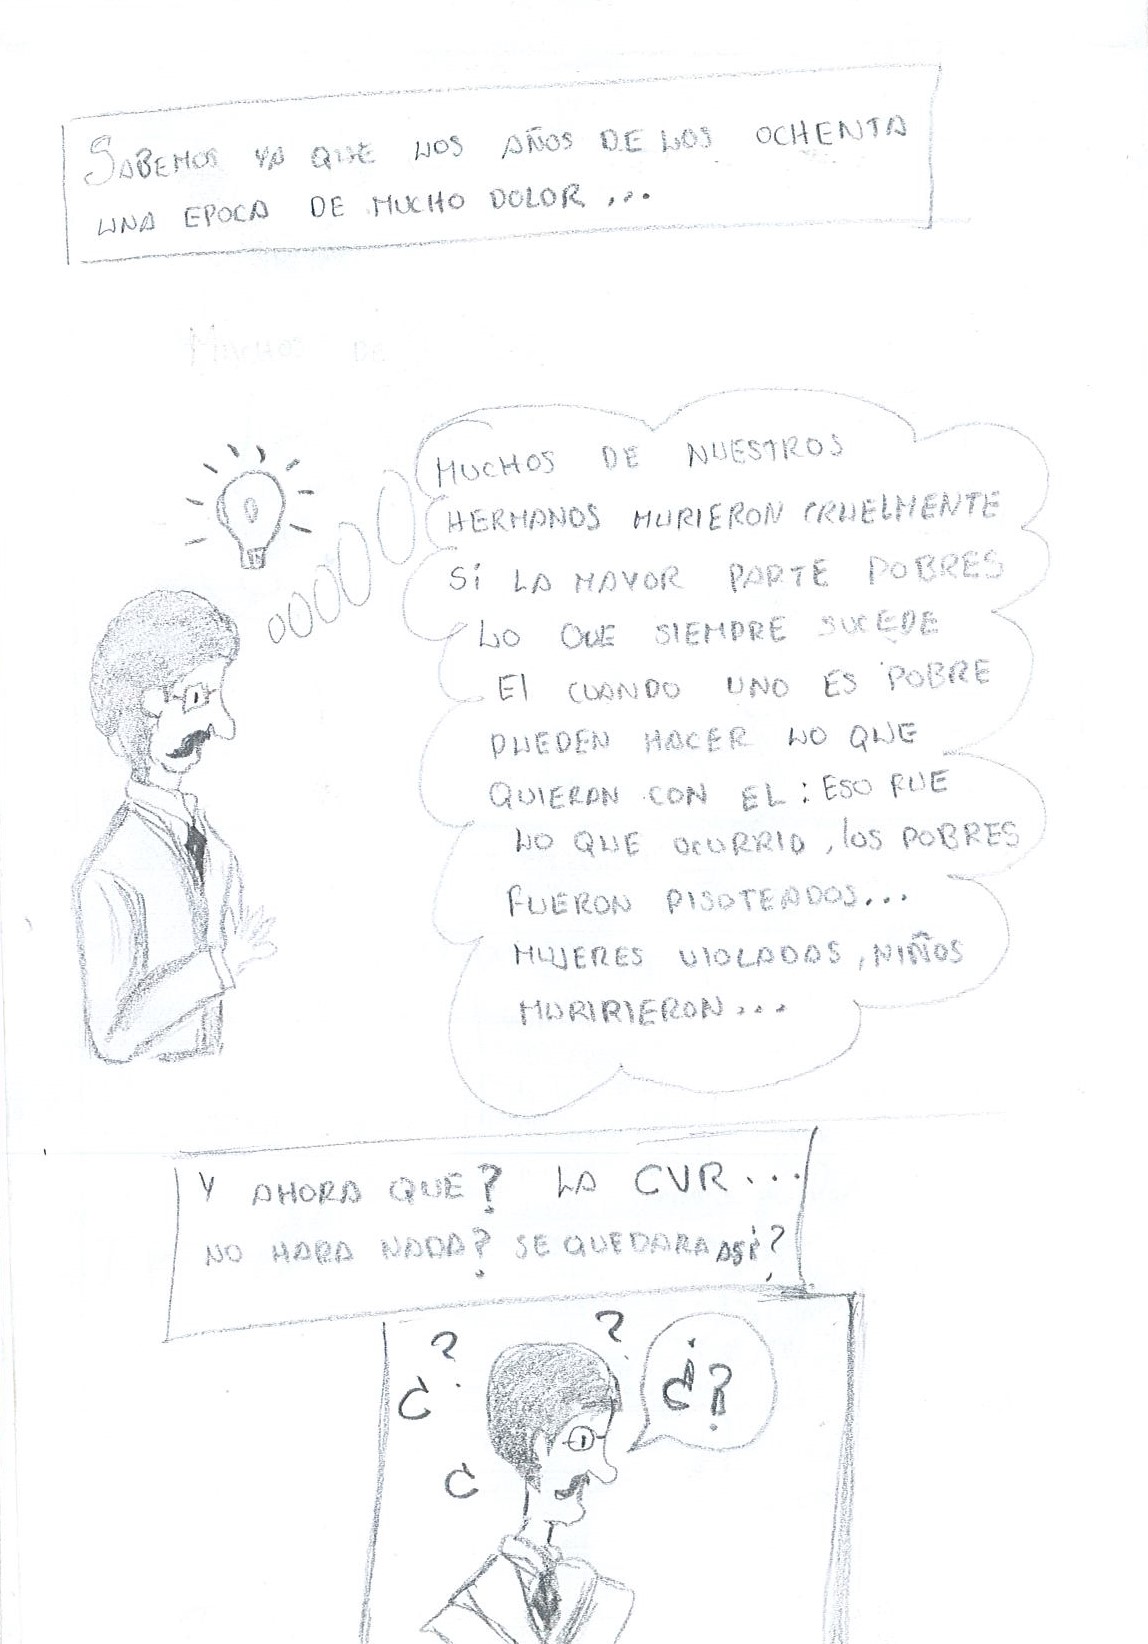 SABEMOS YA QUE LOS AÑOS DE LOS OCHENTA
UNA EPOCA DE MUCHO DOLOR...
MUCHOS DE
MUCHOS DE NUESTROS
HERMANOS MURIERON CRUELMENTE
SI LA MAYOR PARTE POBRES
LO QUE SIEMPRE SUCEDE
EI CUANDO UNO ES POBRE
PUEDEN HACER LO QUE
QUIERAN CON EL : ESO FUE
LO QUE OCURRIO, los POBRES
FUERON PISOTEADOS...
MUJERES VIOLADAS, NIÑOS
MURIRIERON...
Y AHORA QUE? LA CVR...
NO HARA NADA? SE QUEDARA ASÍ?
? ?
¿ ¿?
¿